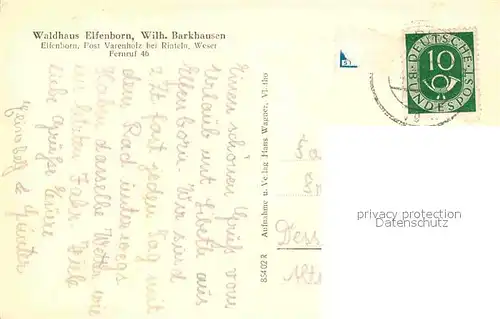 Waldhaus Elfenborn, Wilh. Barkhausen
Elfenborn, Post Varenholz bei Rinteln, Weser
Fernruf 46
Einen schönen Gruß vom
Urlaub mit Lisbeth aus
Elfenborn. Wir sind
z. Zt. fast jeden Tag mit
dem Rad unterwegs
Haben dasselbe Wetter wie
im letzten Jahr. Viele
liebe Grüße Eure
& Günter
Aufnahme u. Verlag Hans Wagner, Vlotho
85402 R
DEUTSCHE BUNDESPOST
10
Dess
privacy protection
www.ansichtskarten-center.de